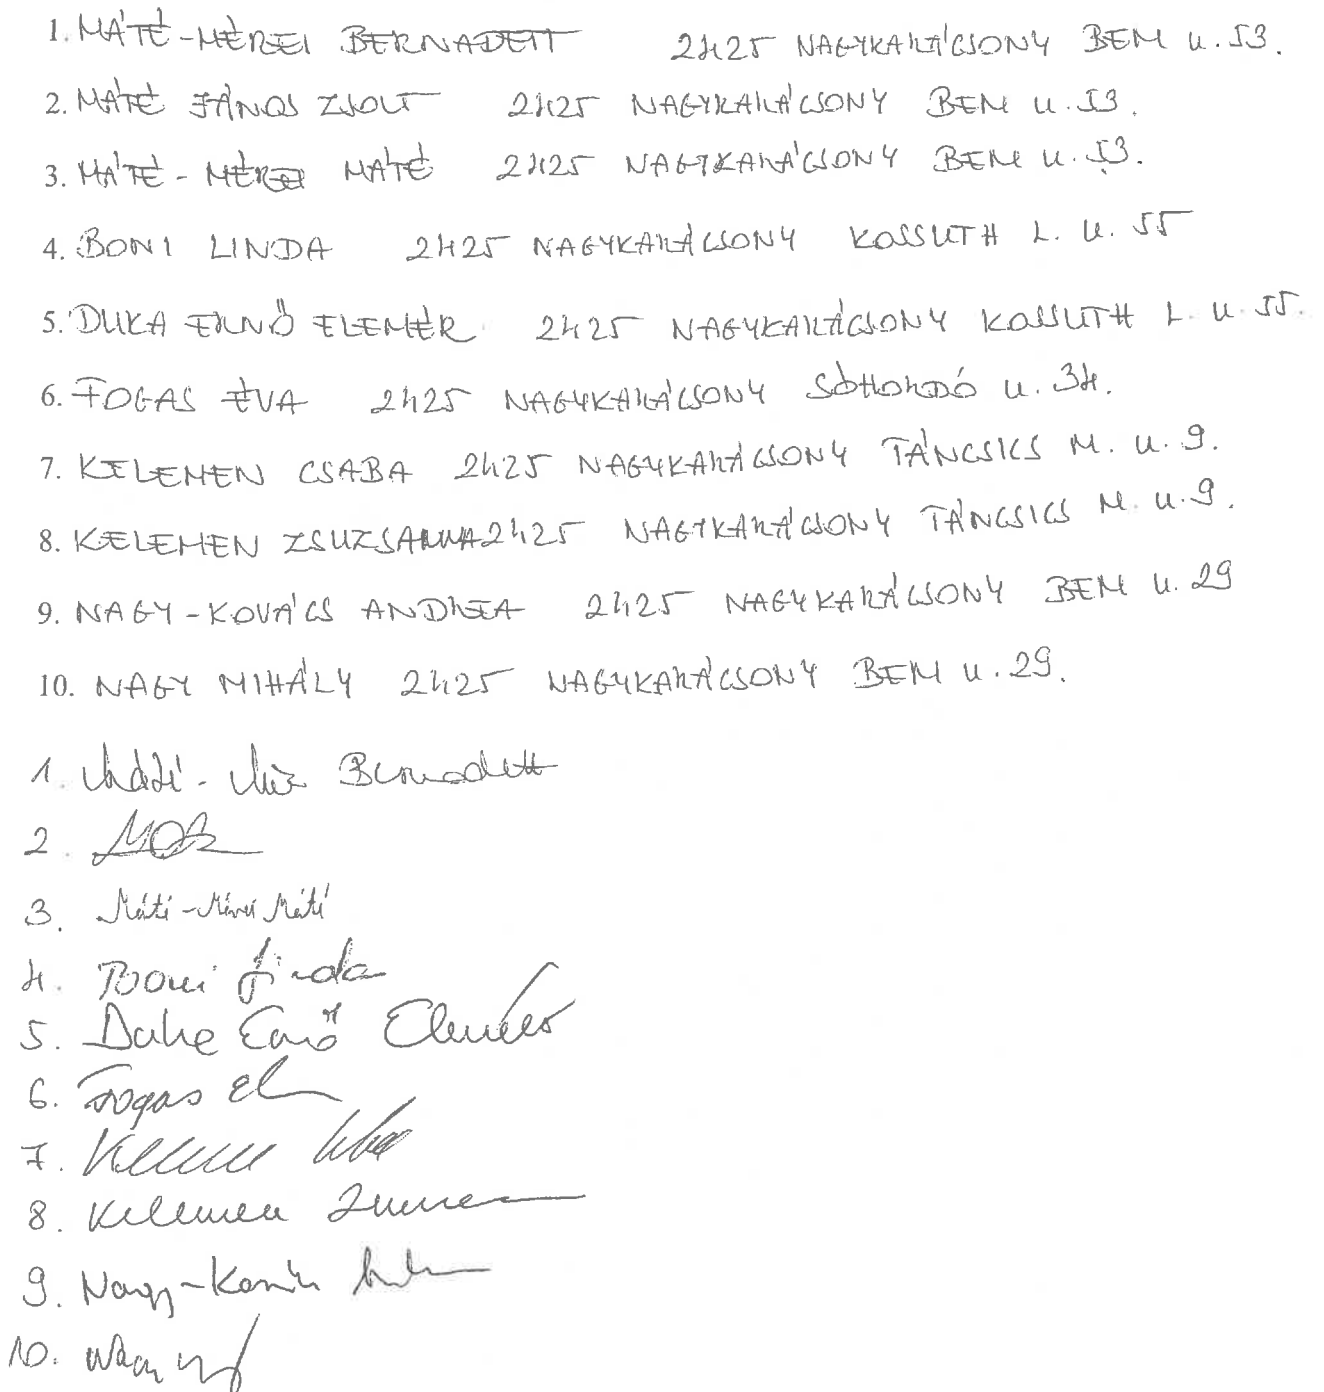 1. MÁTÉ-MÉREI BERNADETT 2425 NAGYKARÁCSONY BEM U. 53.
2. MÁTÉ JÁNOS ZSOLT 2425 NAGYKARÁCSONY BEM U. 53.
3. MÁTÉ-MÉREI MÁTÉ 2425 NAGYKARÁCSONY BEM U. 53.
4. BONI LINDA 2425 NAGYKARÁCSONY KOSSUTH L. U. 55
5. DUKA ERNŐ ELEMÉR 2425 NAGYKARÁCSONY KOSSUTH L. U. 55.
6. FOGAS ÉVA 2425 NAGYKARÁCSONY SÓHORDÓ U. 34.
7. KELEMEN CSABA 2425 NAGYKARÁCSONY TÁNCSICS M. U. 9.
8. KELEMEN ZSUZSANNA 2425 NAGYKARÁCSONY TÁNCSICS M. U. 9.
9. NAGY-KOVÁCS ANDREA 2425 NAGYKARÁCSONY BEM U. 29
10. NAGY MIHÁLY 2425 NAGYKARÁCSONY BEM U. 29.
1. Máté-Mérei Bernadett
2.
3. Máté-Mérei Máté
4. Boni Linda
5. Duka Ernő Elemér
6. Fogas Éva
7. Kelemen Csaba
8. Kelemen
9. Nagy-Kovács
10. Nagy